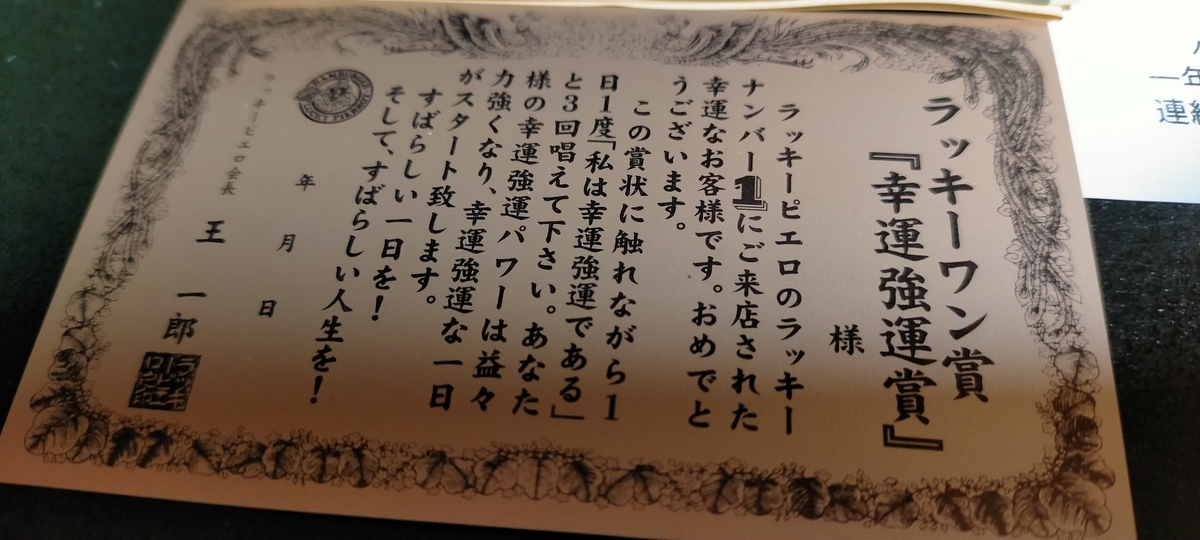 ラッキーワン賞
『幸運強運賞』
様
ラッキーピエロのラッキー
ナンバー1にご来店された
幸運なお客様です。おめでと
うございます。
この賞状に触れながら1
日1度「私は幸運強運である」
と3回唱えて下さい。あなた
様の幸運強運パワーは益々
力強くなり、幸運強運な一日
がスタート致します。
すばらしい一日を!
そして、すばらしい人生を!
年
月
日
ラッキーピエロ会長
王
一郎
一年
連絡